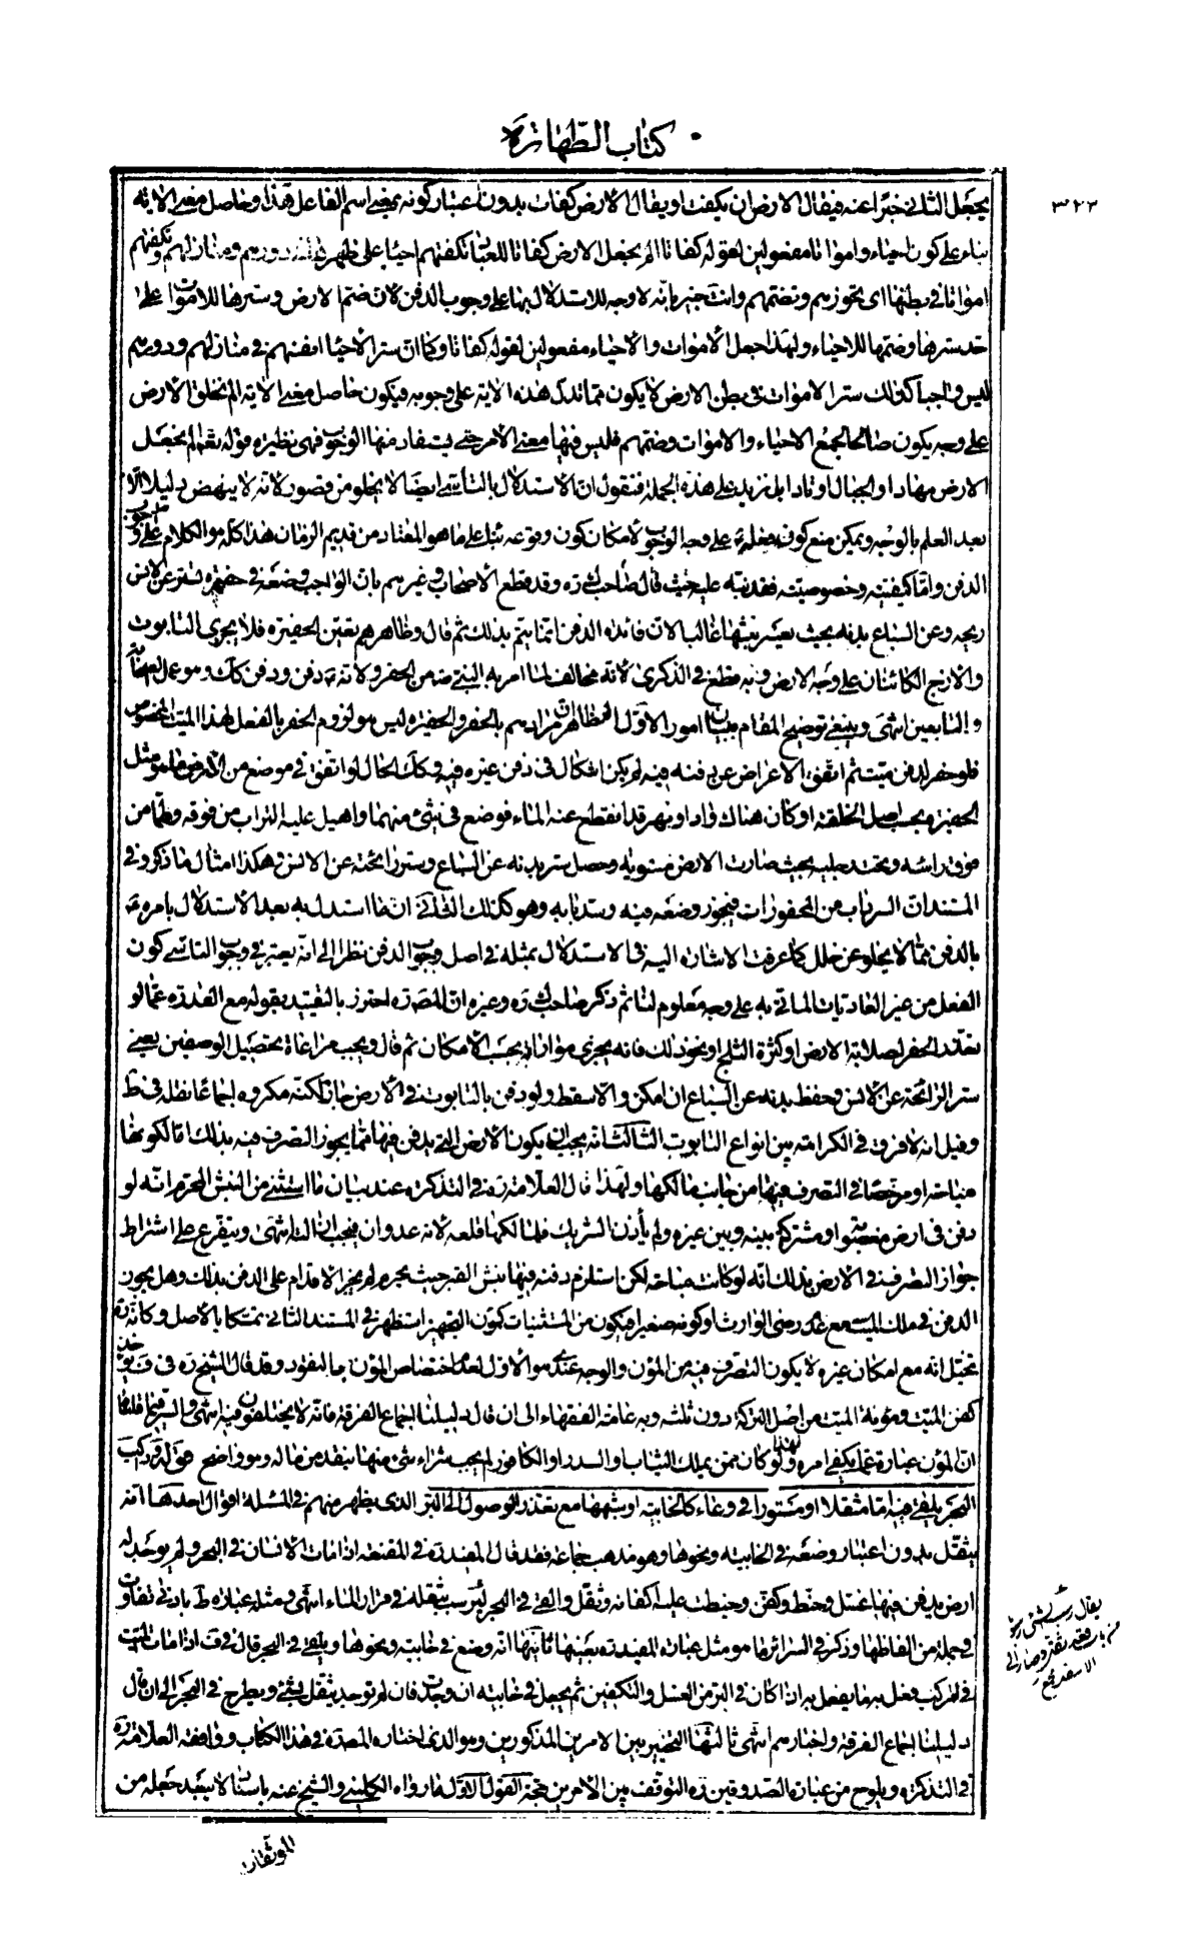 كتاب الطهارة
٣٢٢
يجعل الثاني خبرا عنه فيقال الارض ان يكفت او يقال الارض كفات بدون اعتبار كونه بمعنى اسم الفاعل هذا وحاصل معنى الاية
بناء على كون احياء وامواتا مفعولين لقوله كفاتا الم يجعل الارض كفاتا للعباد تكفتهم احياء على ظهرها في دورهم ومنازلهم وتكفتهم
امواتا في بطنها اى تحوزهم وتضمهم وانت خبير بانه لا وجه للاستدلال بها على وجوب الدفن لان ضم الارض وسترها للاموات على
حد سترها وضمها للاحياء ولهذا جعل الاموات والاحياء مفعولين لقوله كفاتا وكما ان ستر الاحياء انفسهم في منازلهم ودورهم
ليس واجبا كذلك ستر الاموات في بطن الارض لا يكون مما تدل هذه الاية على وجوبه فيكون حاصل معنى الاية الم نخلق الارض
على وجه يكون صالحا لجمع الاحياء والاموات وضمهم فليس فيها معنى الامر حتى يستفاد منها الوجوب فهى نظيره قوله تعالى الم نجعل
الارض مهادا والجبال اوتادا بل نزيد على هذه الجملة فنقول ان الاستدلال بالتأسى ايضا لا يخلو من قصور لانه لا ينهض دليلا الا
بعد العلم بالوجه ويمكن منع كون فعله على وجه الوجوب لامكان كون وقوعه على ما هو المعتاد من قديم الزمان هذا كله هو الكلام على وجوب
الدفن واما كيفيته وخصوصيته فقد نبه عليه حيث قال صاحب ك ره وقد قطع الاصحاب وغيرهم بان الواجب وضعه في حفيرة تستر عن الانس
ريحه وعن السباع بدنه بحيث يعسر نبشها غالبا لان فائدة الدفن انما يتم بذلك ثم قال وظاهرهم تعين الحفيرة فلا يجزى التابوت
والازج الكائنان على وجه الارض وبه قطع في الذكرى لانه مخالف لما امر به النبي ص من الحفر ولانه ع دفن ودفن كك وهو عمل الصحابة
والتابعين انتهى وينبغي توضيح المقام ببيان امور الاول الظاهر ان مرادهم بالحفر والحفيرة ليس هو لزوم الحفر بالفعل لهذا الميت المخصوص
فلو حفر لدفن ميت ثم اتفق الاعراض عن دفنه فيه لم يكن اشكال في دفن غيره فيه وكك الحال لو اتفق في موضع من الارض ما هو مثل
الحفيرة بحسب اصل الخلقة او كان هناك واد او نهر قد انقطع عنه الماء فوضع في شئ منهما واهيل عليه التراب من فوقه وطم من
فوق راسه وتحت رجليه بحيث صارت الارض مستوية وحصل ستر بدنه عن السباع وستر رائحته عن الانس وهكذا امثال ما ذكر وفي
المستند ان السرداب من المحفورات فيجوز وضعه فيه وسد بابه وهو كذلك الثاني ان ما استدل به بعد الاستدلال بامره ع
بالدفن مما لا يخلو عن خلل كما عرفت الاشارة اليه في الاستدلال بمثله في اصل وجوب الدفن نظرا الى انه يعتبر في وجوب التاسى كون
الفعل من غير العاديات الماتى به على وجه معلوم لنا ثم ذكر صاحب ك ره وغيره ان المصره احترز بالتقييد بقوله مع القدرة عما لو
تعذر الحفر لصلابة الارض او كثرة الثلج او نحو ذلك فانه يجزى مواراته بحسب الامكان ثم قال ويجب مراعاة تحصيل الوصفين يعنى
ستر الرائحة عن الانس وحفظ بدنه عن السباع ان امكن والا سقط ولو دفن بالتابوت في الارض جاز لكنه مكروه اجماعا نقله في ط
وقيل انه لا فرق في الكراهة بين انواع التابوت الثالث انه يجب ان يكون الارض التى يدفن فيها مما يجوز التصرف فيه بذلك اما لكونها
مباحة او مرخصا في التصرف فيها من جانب مالكها ولهذا قال العلامة ره في التذكرة عند بيان ما استثنى من النبش المحرم انه لو
دفن في ارض مغصوبة او مشتركة بينه وبين غيره ولم يأذن الشريك فلمالكها قلعه لانه عدوان فيجب ازالته انتهى ويتفرع على اشتراط
جواز التصرف في الارض بذلك انه لو كانت مباحة لكن استلزم دفنه فيها نبش القبر حيث يحرم لم يجز الاقدام على الدفن بذلك وهل يجوز
الدفن في ملك الميت مع عدم رضى الوارث او كونه صغيرا فيكون من المستثنيات كمؤن التجهيز استظهر في المستند الثاني تمسكا بالاصل وكانه ره
تخيل انه مع امكان غيره لا يكون التصرف فيه من المؤن والوجه عندى هو الاول لعدم اختصاص المؤن بالنقود وقد قال الشيخ ره في ف يؤخذ
كفن الميت ومؤنة الميت من اصل التركة دون ثلثه وبه عامة الفقهاء الى ان قال دليلنا اجماع الفرقة فانه لا يختلفون فيه انتهى والسر فيما قلناه
ان المؤن عبارة عما يكفى امره ولهذا لو كان ممن يملك الثياب والسدر او الكافور لم يجب شراء شئ منها بنقد من ماله وهو واضح وراكب
البحر يلقى فيه اما مثقلا او مستورا في وعاء كالخابية او شبهها مع تعذر الوصول الى البر الذى يظهر منهم في المسئلة اقوال احدها انه
يثقل بدون اعتبار وضعه في الخابية ونحوها وهو مذهب جماعة فقد قال المفيد ره في المقنعة اذا مات الانسان في البحر ولم يوجد له
ارض يدفن فيها غسل وحنط وكفن وخيطت عليه اكفانه وثقل والقى في البحر ليرسب بثقله في قرار الماء انتهى ومثله عبارة ط بادنى تفاوت
في جملة من الفاظها وذكر في السرائر ما هو مثل عبارة المفيد ره بعينها ثانيها انه وضع في خابية ونحوها ويلقى في البحر قال في ف اذا مات الميت
في مركب فعل به ما يفعل به اذا كان في البر من الغسل والتكفين ثم يجعل في خابية ان وجدت فان لم توجد يثقل بشئ ويطرح في البحر الى ان قال
دليلنا اجماع الفرقة واخبارهم انتهى ثالثها التخيير بين الامرين المذكورين وهو الذى اختاره المصره في هذا الكتاب ووافقه العلامة ره
في التذكرة ويلوح من عبارة الصدوقين ره التوقف بين الامرين حجة القول الاول ما رواه الكليني والشيخ عنه باسناد لا يبعد جعله من
يقال رسب الشئ رسوبا
من باب قعد ثقل وصار الى
الاسفل مجمع
الموثقات